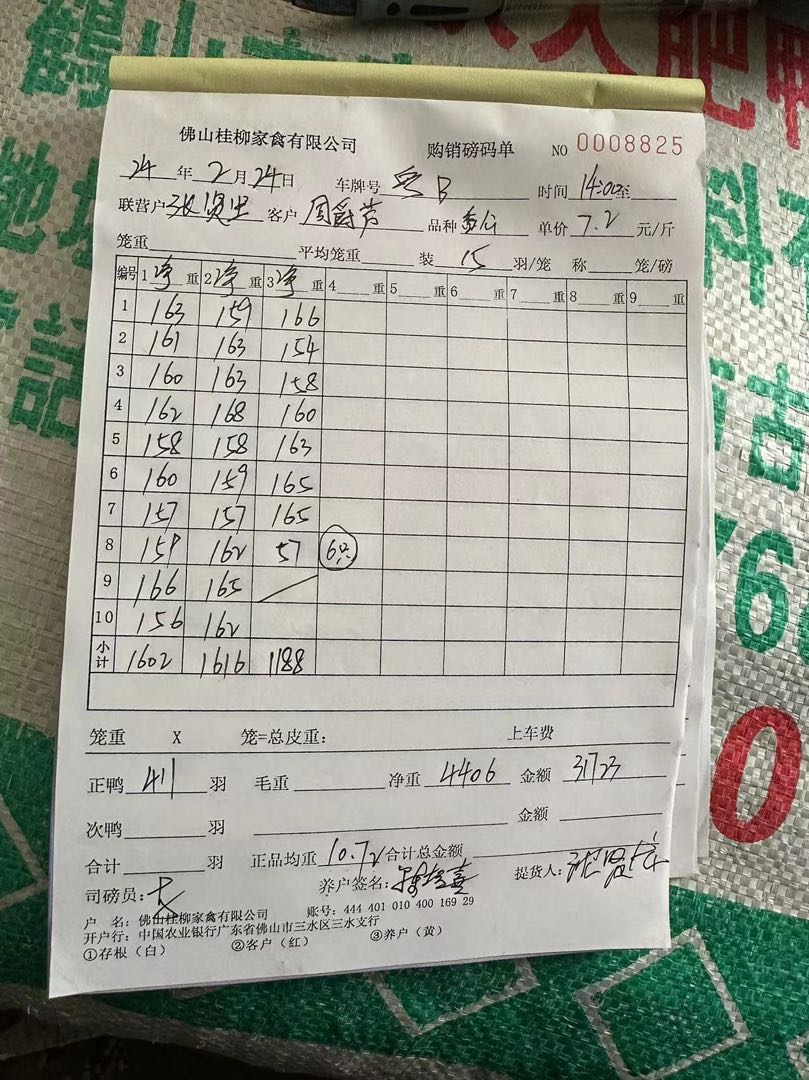 鹤山
肥鸭
佛山桂柳家禽有限公司 购销磅码单 NO 0008825
24 年 2 月 24 日 车牌号 粤B 时间 14:00 至
联营户 客户 品种 单价 7.2 元/斤
笼重 平均笼重 装 15 羽/笼 称 笼/磅
编号 1 净 重 2 净 重 3 净 重 4 重 5 重 6 重 7 重 8 重 9 重
1 163 159 166
2 161 163 154
3 160 163 158
4 162 168 160
5 158 158 163
6 160 159 165
7 157 157 165
8 159 162 57 6只
9 166 165
10 156 162
小计 1602 1616 1188
笼重 X 笼=总皮重: 上车费
正鸭 411 羽 毛重 净重 4406 金额 31723
次鸭 羽 金额
合计 羽 正品均重 10.72 合计总金额
司磅员: 养户签名: 提货人:
户 名: 佛山桂柳家禽有限公司 账号: 444 401 010 400 169 29
开户行: 中国农业银行广东省佛山市三水区三水支行
①存根(白) ②客户(红) ③养户(黄)